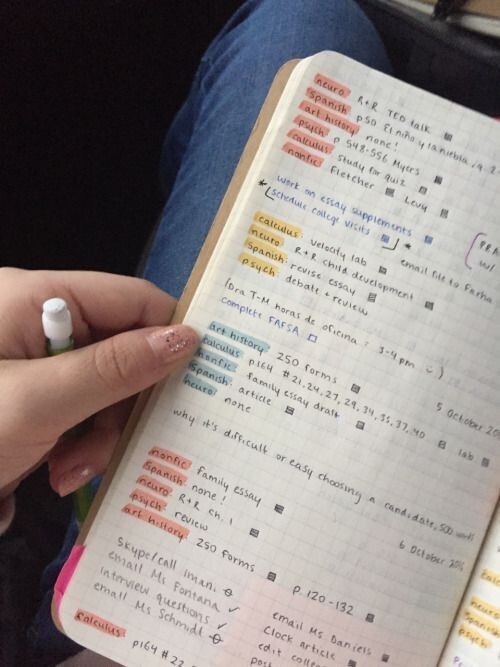 neuro R+R TED talk
Spanish p50 El niño y la niebla, q. 2-
art history none!
psych p 548-556 Myers
calculus study for quiz
nonfic Fletcher Levy
work on essay supplements
* schedule college visits *
email file to Farha
calculus: velocity lab
neuro: R+R child development
Spanish: revise essay
psych debate + review
(Dra T-M horas de oficina: 3-4pm)
complete FAFSA
5 October 20
art history: 250 forms
calculus: p164 #21, 24, 27, 29, 34, 35, 37, 40 lab
nonfic: family essay draft
Spanish: article
neuro: none
why it's difficult or easy choosing a candidate, 500 words
6 October 2016
nonfic family essay
Spanish: none!
neuro R+R ch. 1
psych: review
art history 250 forms p. 120-132
Skype/call Iman.
email Ms Fontana ✓
interview questions ✓
email Ms Schmidt
email Ms Daniels
Clock article
edit colle
post
calculus p164 # 22,
PRA
w/
neuro
Spanish
psych